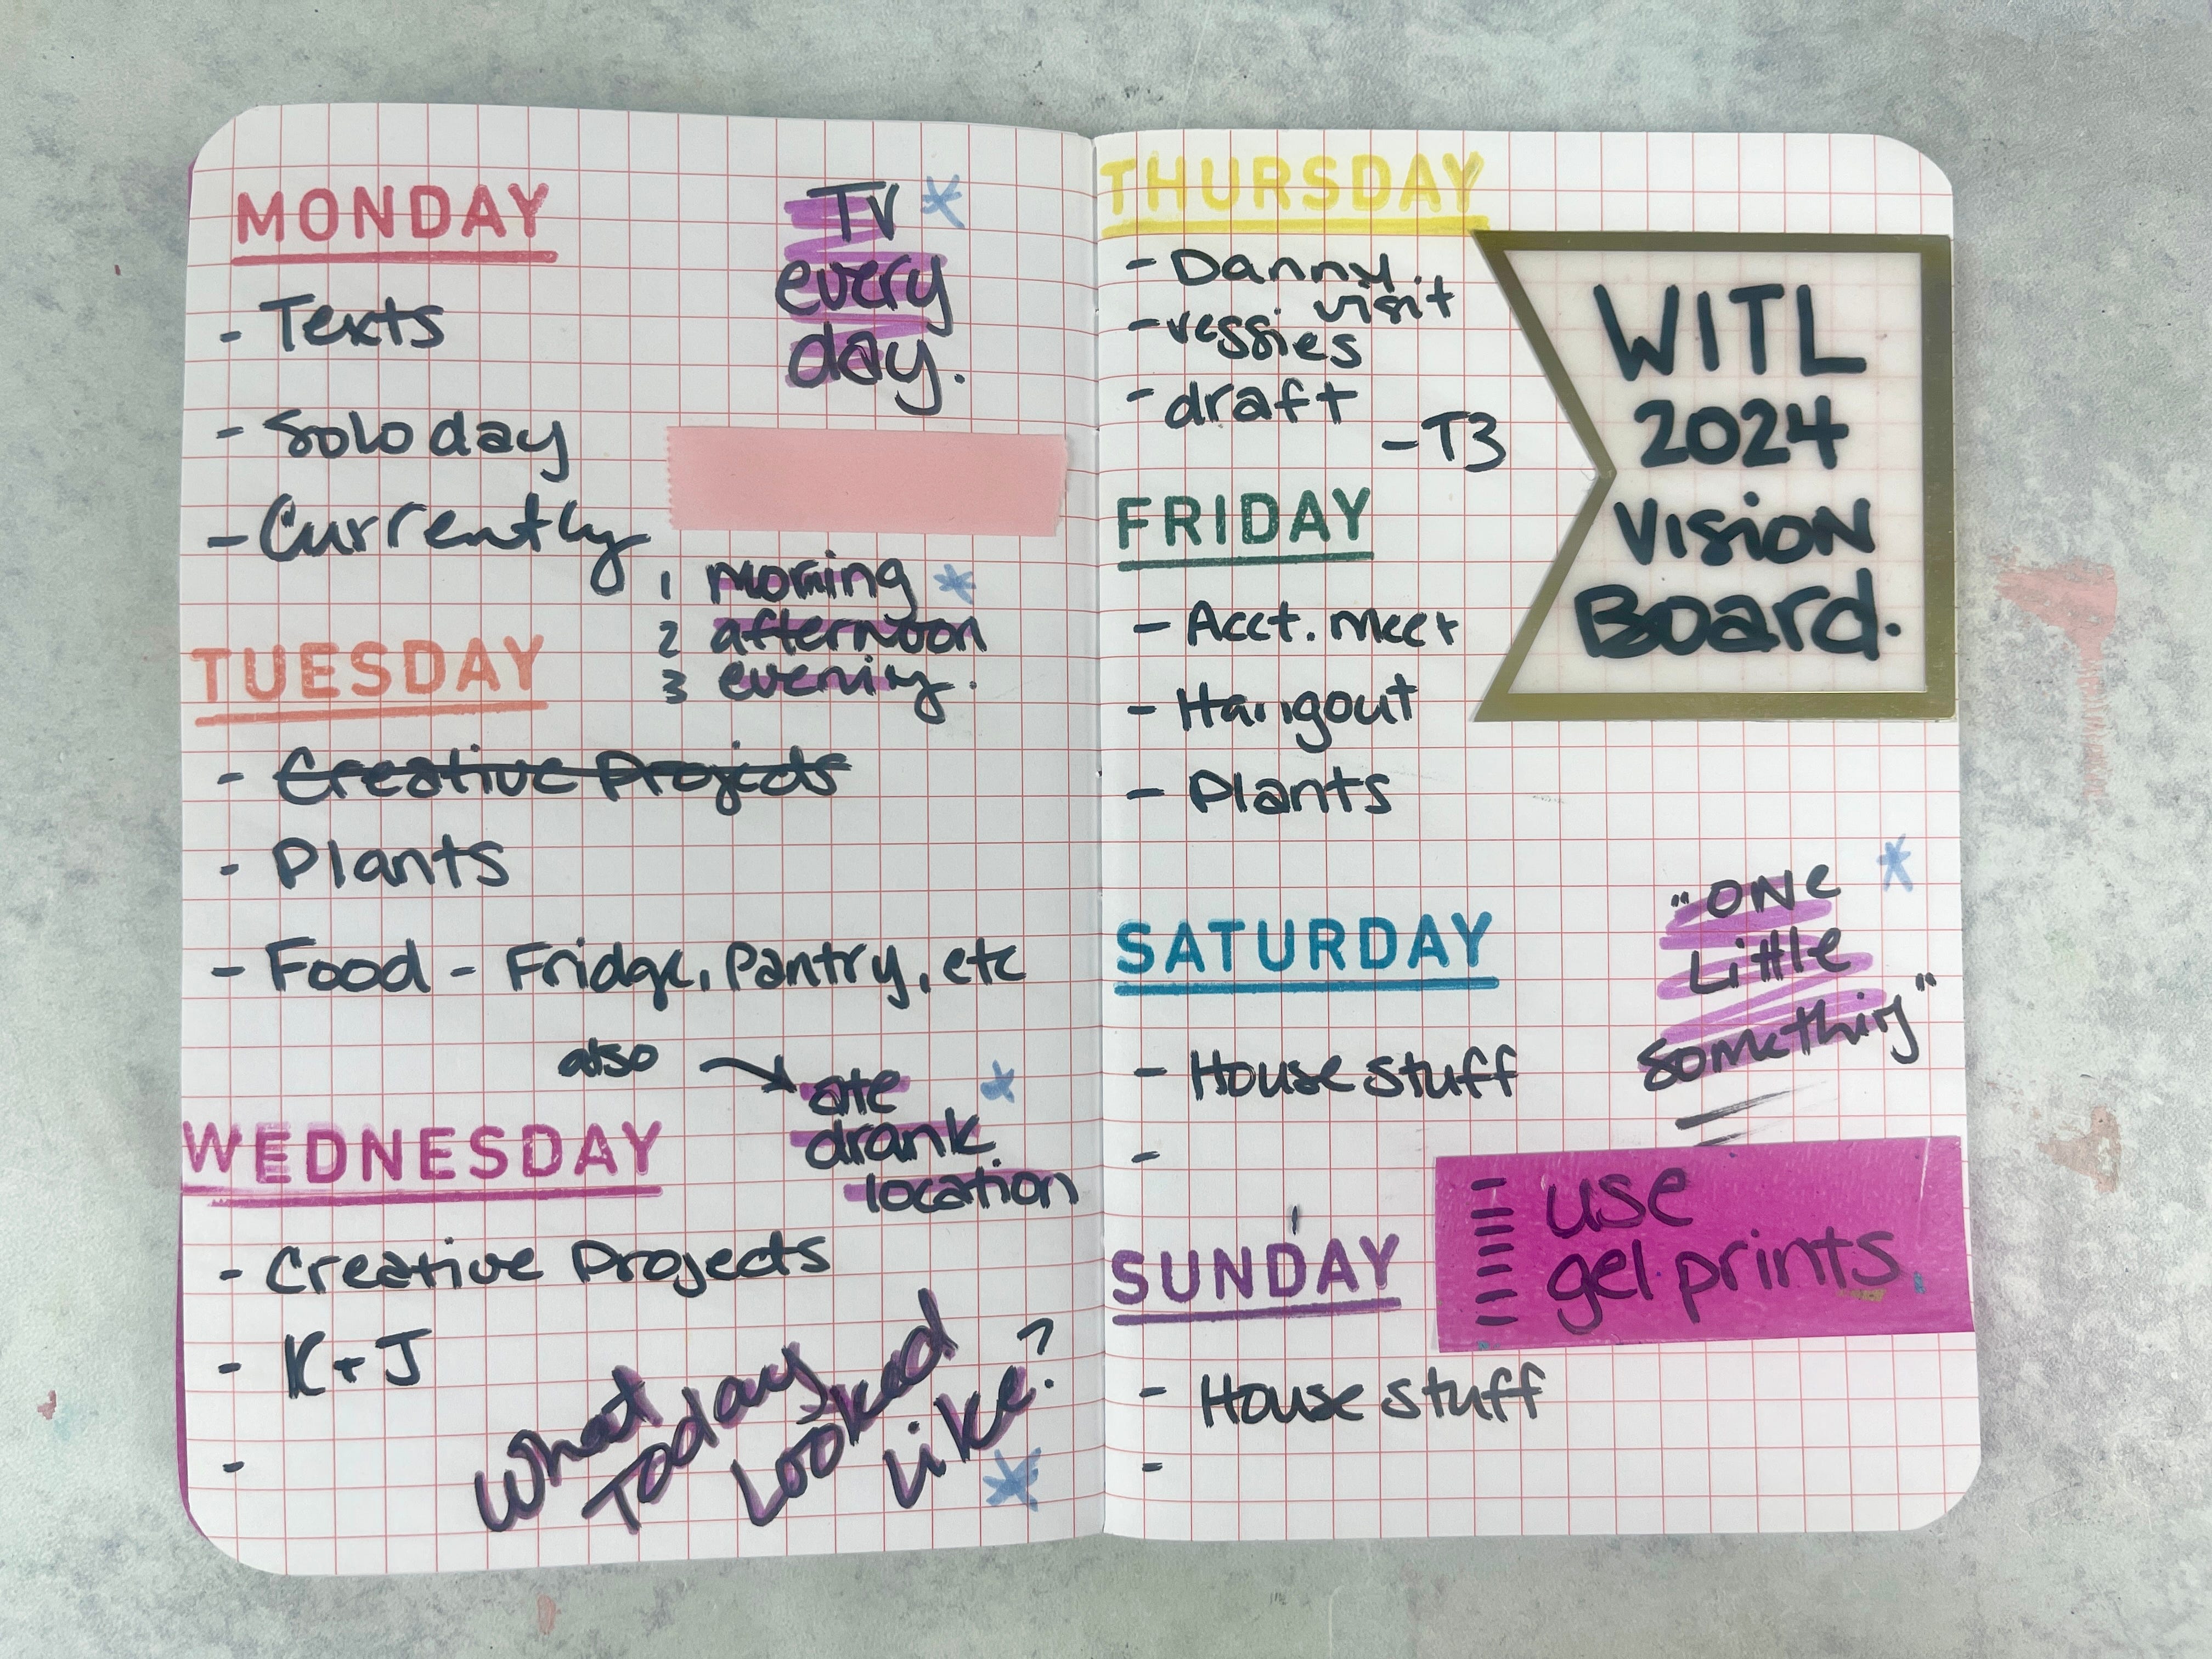 MONDAY
- Texts
- Solo day
- Currently
TV
every
day.
1 morning
2 afternoon
3 evening.
TUESDAY
- Creative Projects
- Plants
- Food - Fridge, Pantry, etc
also
ate
drank
location
WEDNESDAY
- Creative Projects
- K + J
-
What
Today
Looked
Like?
THURSDAY
- Danny
visit
- veggies
- draft
- T3
WITL
2024
Vision
Board.
FRIDAY
- Acct. Meet
- Hangout
- Plants
SATURDAY
- House stuff
-
"ONe
Little
something"
use
gel prints.
SUNDAY
- House stuff
-